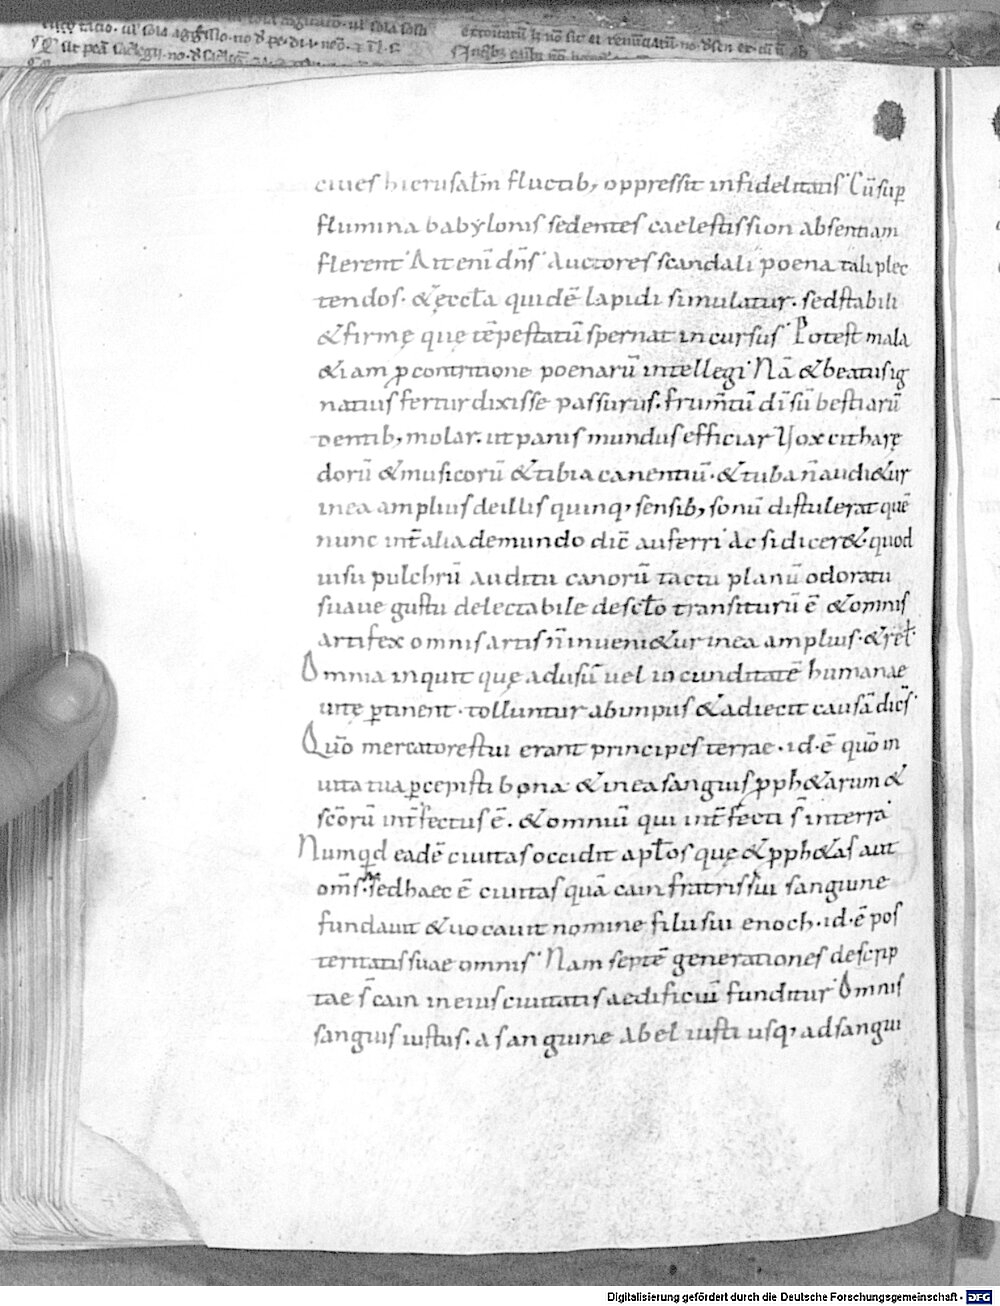 ciues hierusalm̄ fluctib; oppressit infidelitatis. Cū sup̱
flumina babylonis sedentes caelestis sion absentiam
flerent. Ait eni dn̄s. Auctores scandali poena tali plec
tendos. & ęccła quidē lapidi simulatur. sed stabili
& firmę quę tēpestatū spernat incursus. Potest mala
& iam p̱ contritione poenarū intellegi. Nā & beatus ig
natius fertur dixisse passurus. frum̄tū di sū bestiarū
dentib; molar. ut panis mundus efficiar. Vox citharę
dorū & musicorū & tibia canentiū. & tuba n̄ audi&ur
in ea amplius de illis quinq; sensib; sonū distulerat quē
nunc int̄ alia de mundo dic̄ auferri. Ac si dicer& quod
uisu pulchrū auditu canorū tactu planū odoratu
suaue gustu delectabile de scło transiturū ē & omnis
artifex omnis artis n̄ inueni&ur in ea amplius. & reł.
Omnia inquit quę ad usū uel iucunditatē humanae
uitę p̱tinent. tolluntur ab impiis & adiecit causā dic̄s.
Quō mercatores tui erant principes terrae. id. ē quō in
uita tua p̱cepisti bona. & in ea sanguis pph&arum &
sc̄orū int̄fectus ē. & omniū qui int̄fecti s̄ in terra
Numqđ eadē ciuitas occidit apłos quę & pph&as aut
om̄s. sed haec ē ciuitas quā cain fratris sui sanguine
fundauit & uocauit nomine filii sui enoch. id. ē pos
teritatis suae omnis. Nam septē generationes descrip
tae s̄ cain in eius ciuitatis aedificiū funditur. Omnis
sanguis iustus. a sanguine abel iusti usq; ad sangui
Digitalisierung gefördert durch die Deutsche Forschungsgemeinschaft - DFG